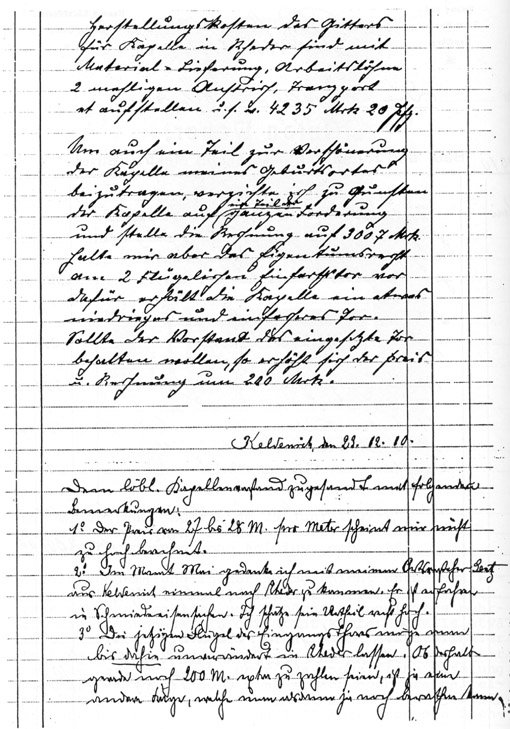 Herstellungskosten des Gitters
für Kapelle in Rheder sind mit
Material-Lieferung, Arbeitslöhne
2 mahligen Anstrich, Transport
et aufstellen u.s.w. 4235 Mrk 20 Pfg.
Um auch ein Teil zur Verschönerung
der Kapelle meines Geburtsortes
beizutragen, verzichte ich zu Gunsten
ein Teil der
der Kapelle auf ganzen Forderung
und stelle die Rechnung auf 3007 Mrk.
halte mir aber das Eigentumsrecht
am 2 Flügelichen Einfahrtstor vor
dafür erhält die Kapelle ein etwas
niedrieges und einfacheres Tor.
Sollte der Vorstand das eingesetzte Tor
behalten wollen, so erhöht sich der Preis
u. Rechnung um 200 Mrk.
Keldenich, den 23. 12. 10.
Dem löbl. Kapellenvorstand zugesandt mit folgenden
Bemerkungen:
1° Der Preis von 27 bis 28 M. pro Meter scheint mir nicht
zu hoch berechnet.
2° Im Monat Mai gedenke ich mit meinem Ortsvorsteher
aus Keldenich einmal nach Rheder zu kommen. Er ist erfahren
in Schmiedeeisensachen. Ich schätze sein Urtheil recht hoch.
3° Die jetzigen Flügel des Eingangsthores möge man
bis dahin unverändert in Rheder lassen. Ob deshalb
gerade noch 200 M. extra zu zahlen seien, ist ja eine
andere Frage, welche man alsdann ja noch berathen kann.